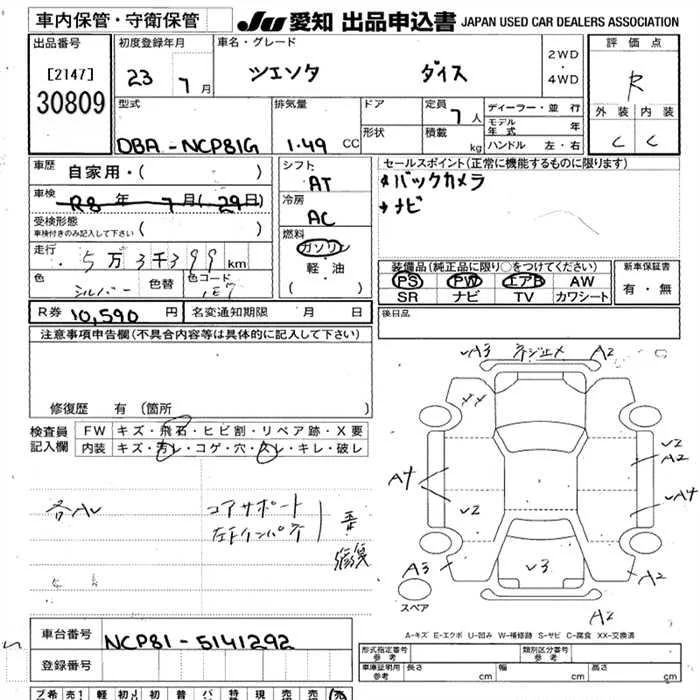 車内保管・守衛保管
JU 愛知 出品申込書 JAPAN USED CAR DEALERS ASSOCIATION
出品番号
[2147]
30809
初度登録年月
23 7月
車名・グレード
ツエンタ ダイス
2WD
・
4WD
評価点
R
外装 内装
C C
型式
DBA-NCP81G
排気量
1.49 CC
ドア
形状
定員
7人
積載
kg
ディーラー・並行
モデル年式 年
ハンドル 左・右
車歴
自家用・( )
車検
R8年 7月(29日)
受検形態
車検付きのみ記入して下さい ( )
走行
5万3千399km
色
シルバー
色替
色コード
1E7
シフト
AT
冷房
AC
燃料
ガソリン
軽・油
( )
セールスポイント(正常に機能するものに限ります)
バックカメラ
ナビ
装備品(純正品に限り○をつけてください)
PS PW エアB AW
SR ナビ TV カワシート
新車保証書
有・無
R券 10,590 円 名変通知期限 月 日
後日品
注意事項申告欄(不具合内容等は具体的に記入して下さい)
修復歴 有(箇所 )
検査員記入欄
FW キズ・飛石・ヒビ割・リペア跡・X要
内装 キズ・汚レ・コゲ・穴・スレ・キレ・破レ
各AU
コアサポート
左下インパネ
修復
A3 ネジ止メ A2
A4
U2
U2
A2
UA4
A3
U3
A2
A2
スペア
A-キズ E-エクボ U-凹み W-補修跡 S-サビ C-腐食 XX-交換済
車台番号 NCP81-5141292
登録番号
形式指定番号 参考
類別区分番号 参考
車庫証明用 参考 長さ cm 幅 cm 高さ cm